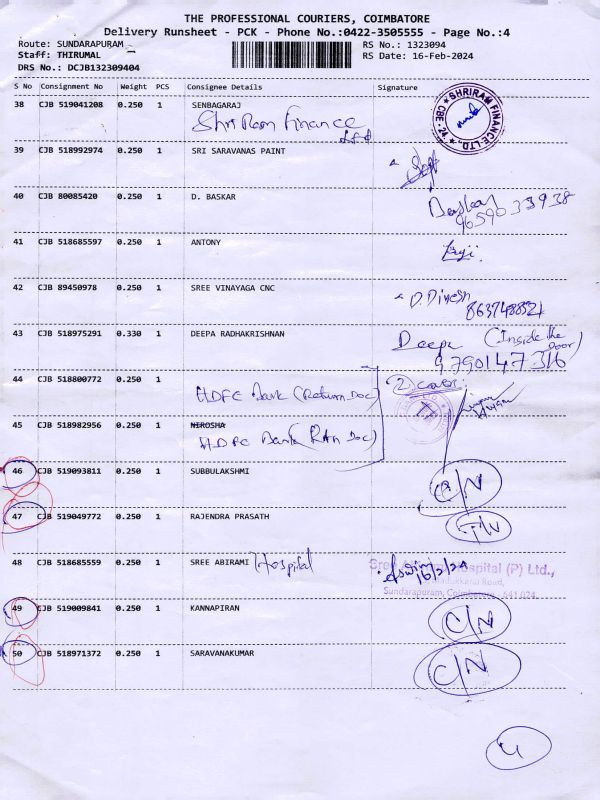 THE PROFESSIONAL COURIERS, COIMBATORE
Delivery Runsheet - PCK - Phone No.:0422-3505555 - Page No.:4
Route: SUNDARAPURAM RS No.: 1323094
Staff: THIRUMAL RS Date: 16-Feb-2024
DRS No.: DCJB132309404
S No Consignment No Weight PCS Consignee Details Signature
38 CJB 519041208 0.250 1 SENBAGARAJ
Shri Ram Finance
SHRIRAM FINANCE LTD. CBE-24
39 CJB 518992974 0.250 1 SRI SARAVANAS PAINT
40 CJB 80085420 0.250 1 D. BASKAR
Baskar
9659033938
41 CJB 518685597 0.250 1 ANTONY
42 CJB 89450978 0.250 1 SREE VINAYAGA CNC D. Dinesh
863748852
43 CJB 518975291 0.330 1 DEEPA RADHAKRISHNAN Deepa (Inside the door)
9790147316
44 CJB 518800772 0.250 1 2 cover
HDFC Bank (Return Doc)
45 CJB 518982956 0.250 1 NIROSHA
HDFC Bank Doc)
46 CJB 519093811 0.250 1 SUBBULAKSHMI C/N
47 CJB 519049772 0.250 1 RAJENDRA PRASATH
48 CJB 518685559 0.250 1 SREE ABIRAMI Hospital
Aswin 16/2/24
Sree Hospital (P) Ltd.,
Road,
Sundarapuram, Coimbatore - 641 024.
49 CJB 519009841 0.250 1 KANNAPIRAN C/N
50 CJB 518971372 0.250 1 SARAVANAKUMAR C/N
4